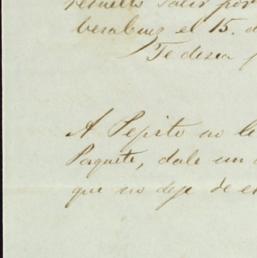 resuelto salir por
Veracruz el 15. d
Te desea
A Pepito no le
Paquete, dale un
que no deje de e